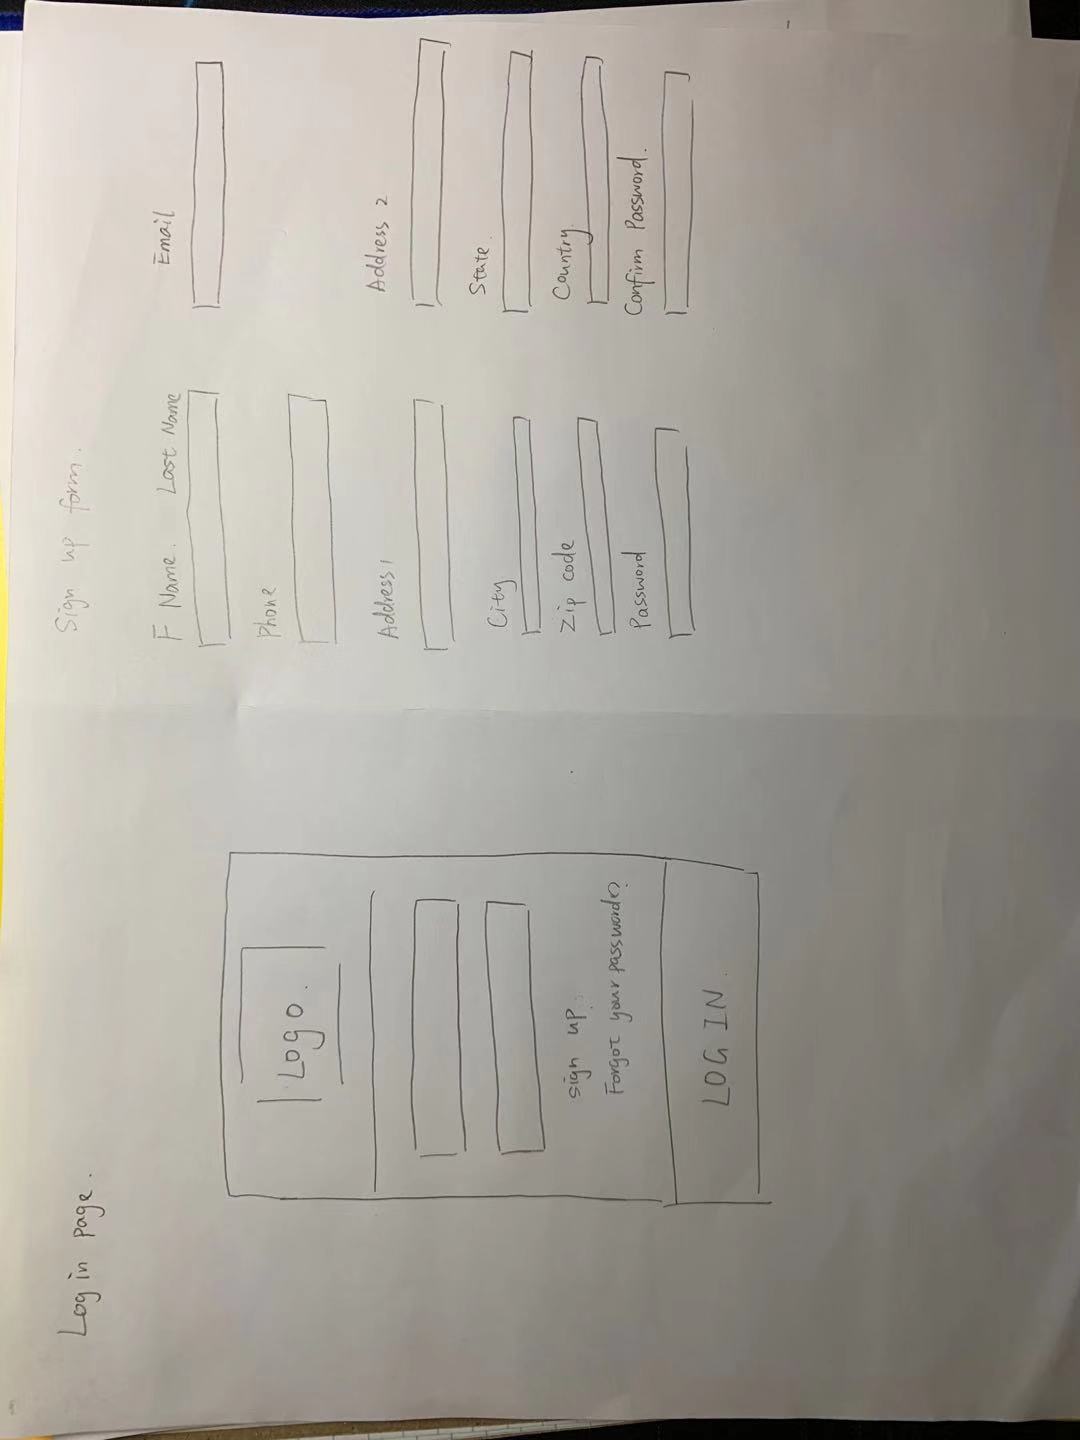 Log in page.
Logo.
sign up.
Forgot your password?
LOG IN.
Sign up form.
F Name. Last Name
Email
Phone
Address 1
Address 2
City
State.
Zip code
Country
Password
Confirm Password.